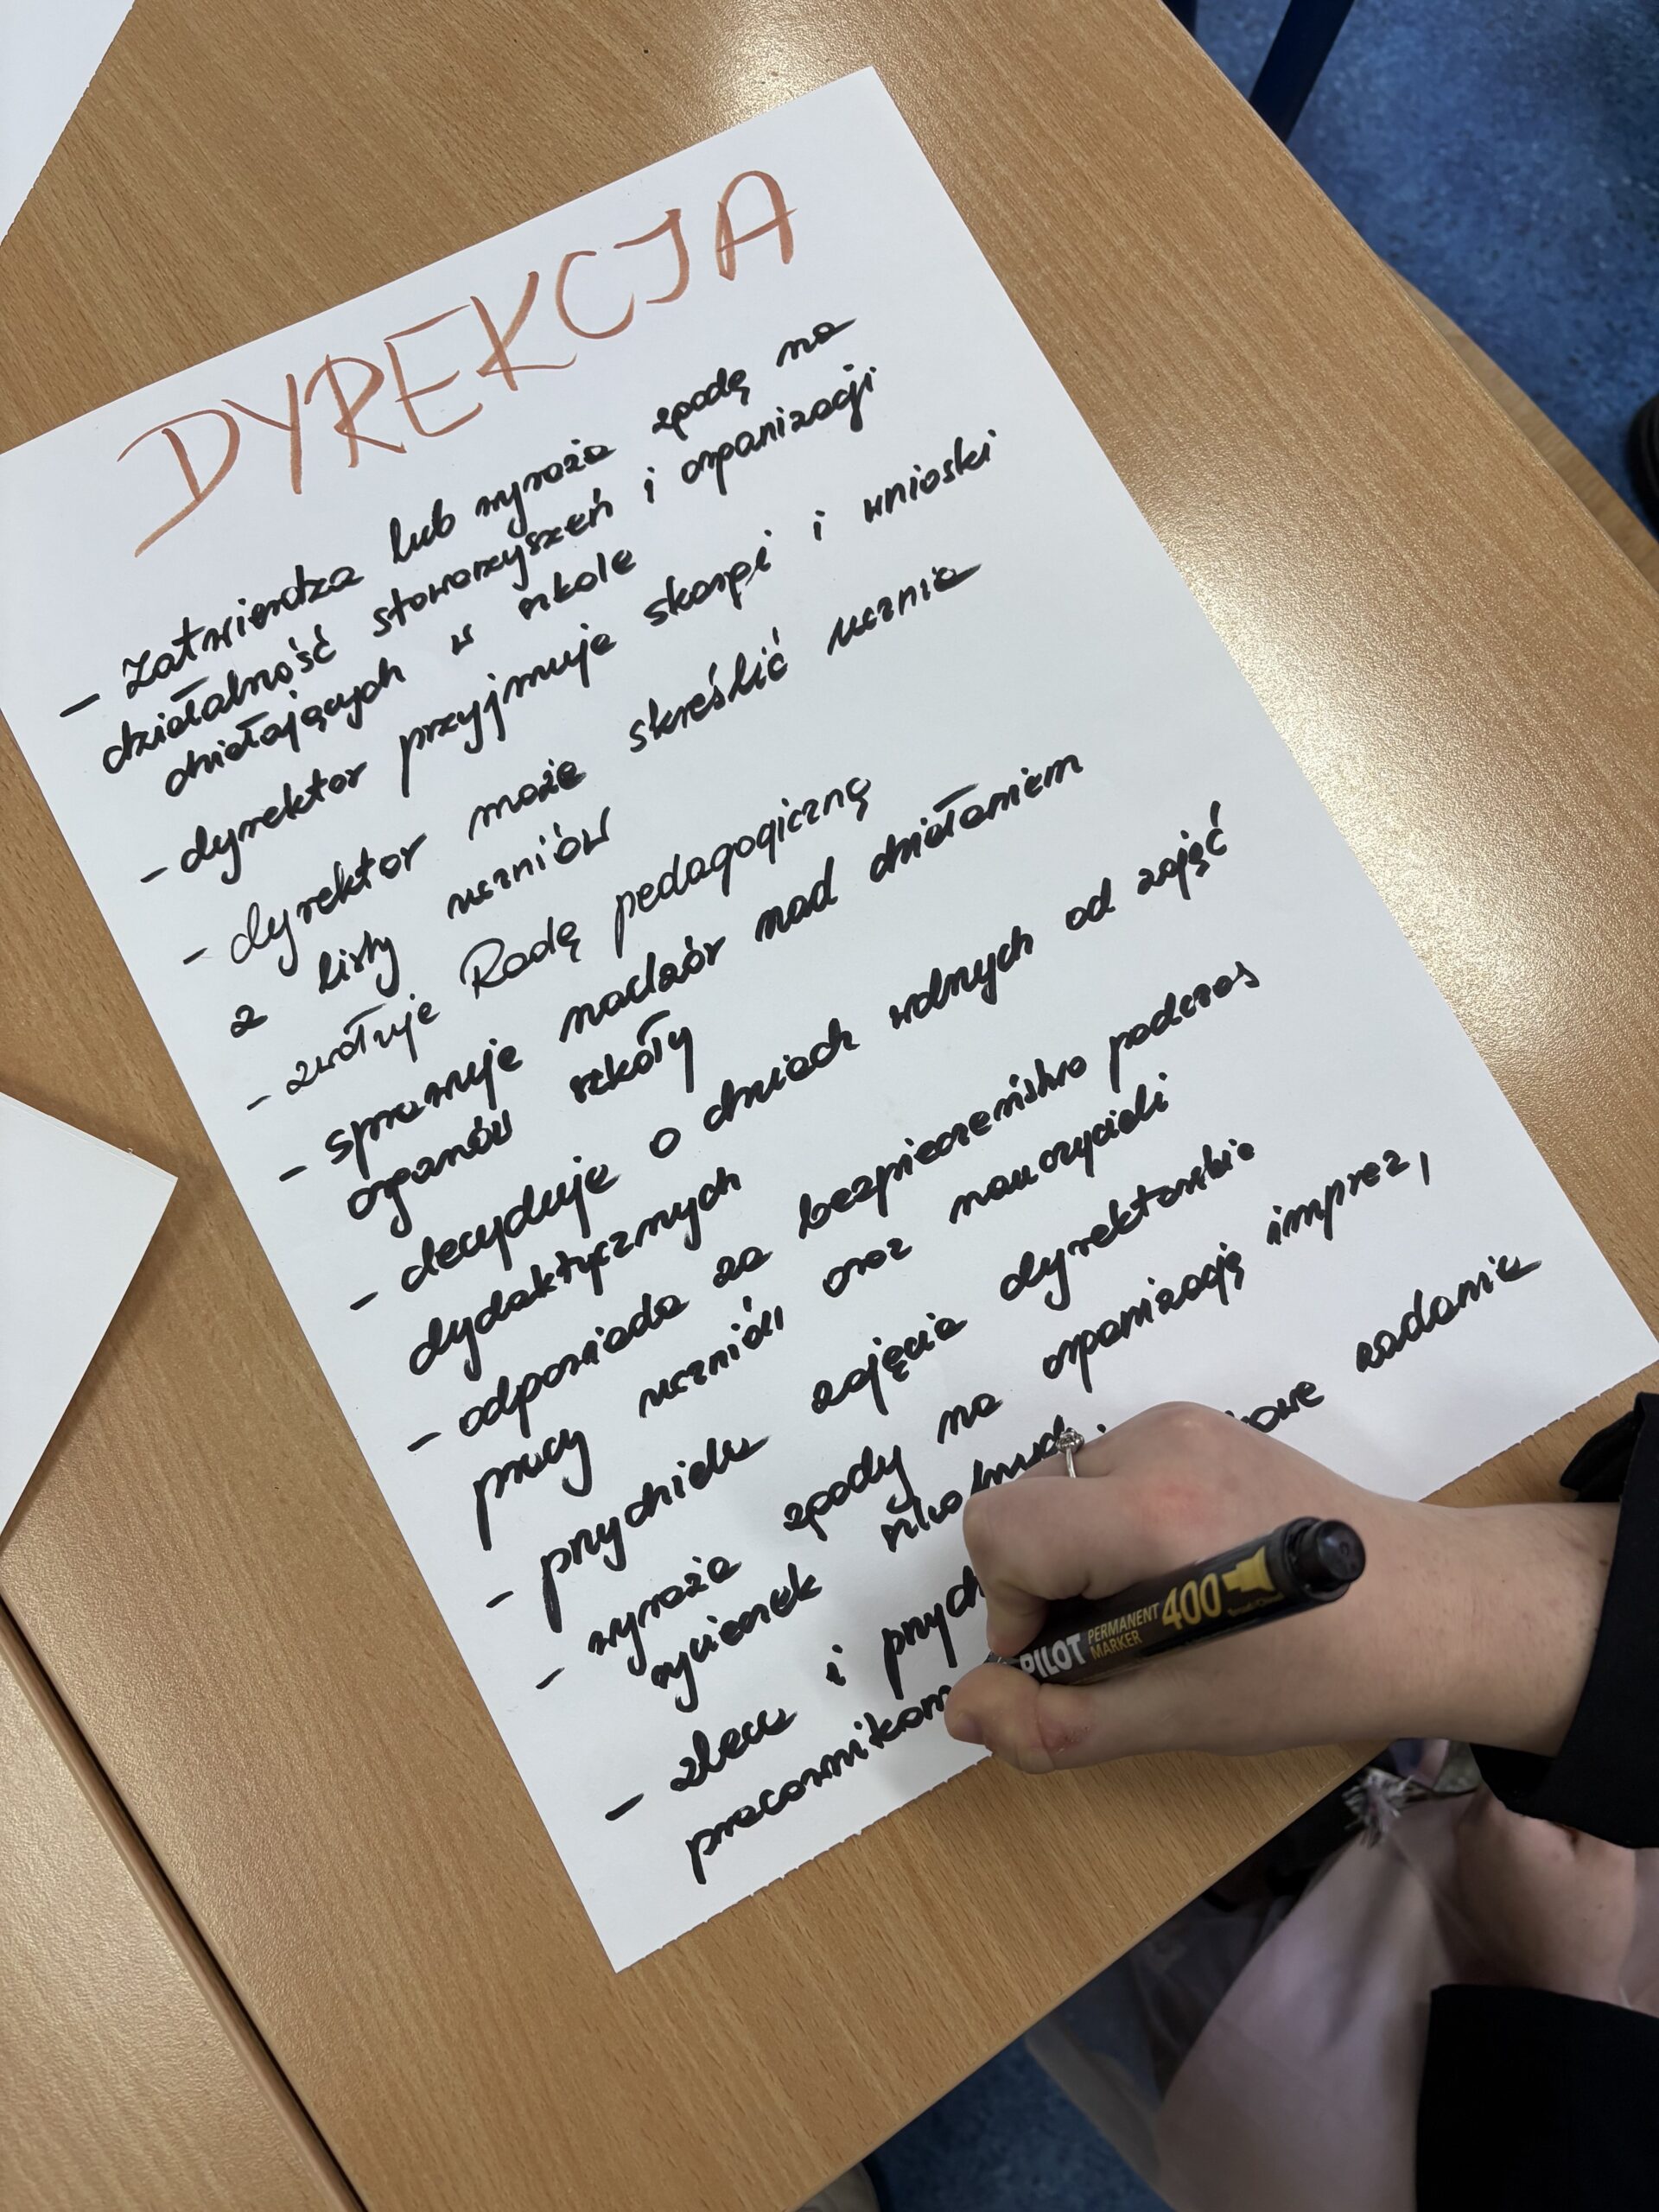 DYREKCJA
- zatwierdza lub wyraża zgodę na
działalność stowarzyszeń i organizacji
działających w szkole
- dyrektor przyjmuje skargi i wnioski
- dyrektor może skreślić ucznia
z listy uczniów
- zwołuje Radę pedagogiczną
- sprawuje nadzór nad działaniem
organów szkoły
- decyduje o dniach wolnych od zajęć
dydaktycznych
- odpowiada za bezpieczeństwo podczas
pracy uczniów oraz nauczycieli
- przydziela zajęcia dyrektorskie
- wyraża zgody na organizację imprez,
wycieczek
- zleca i
zadania
pracownikom
PILOT PERMANENT MARKER 400